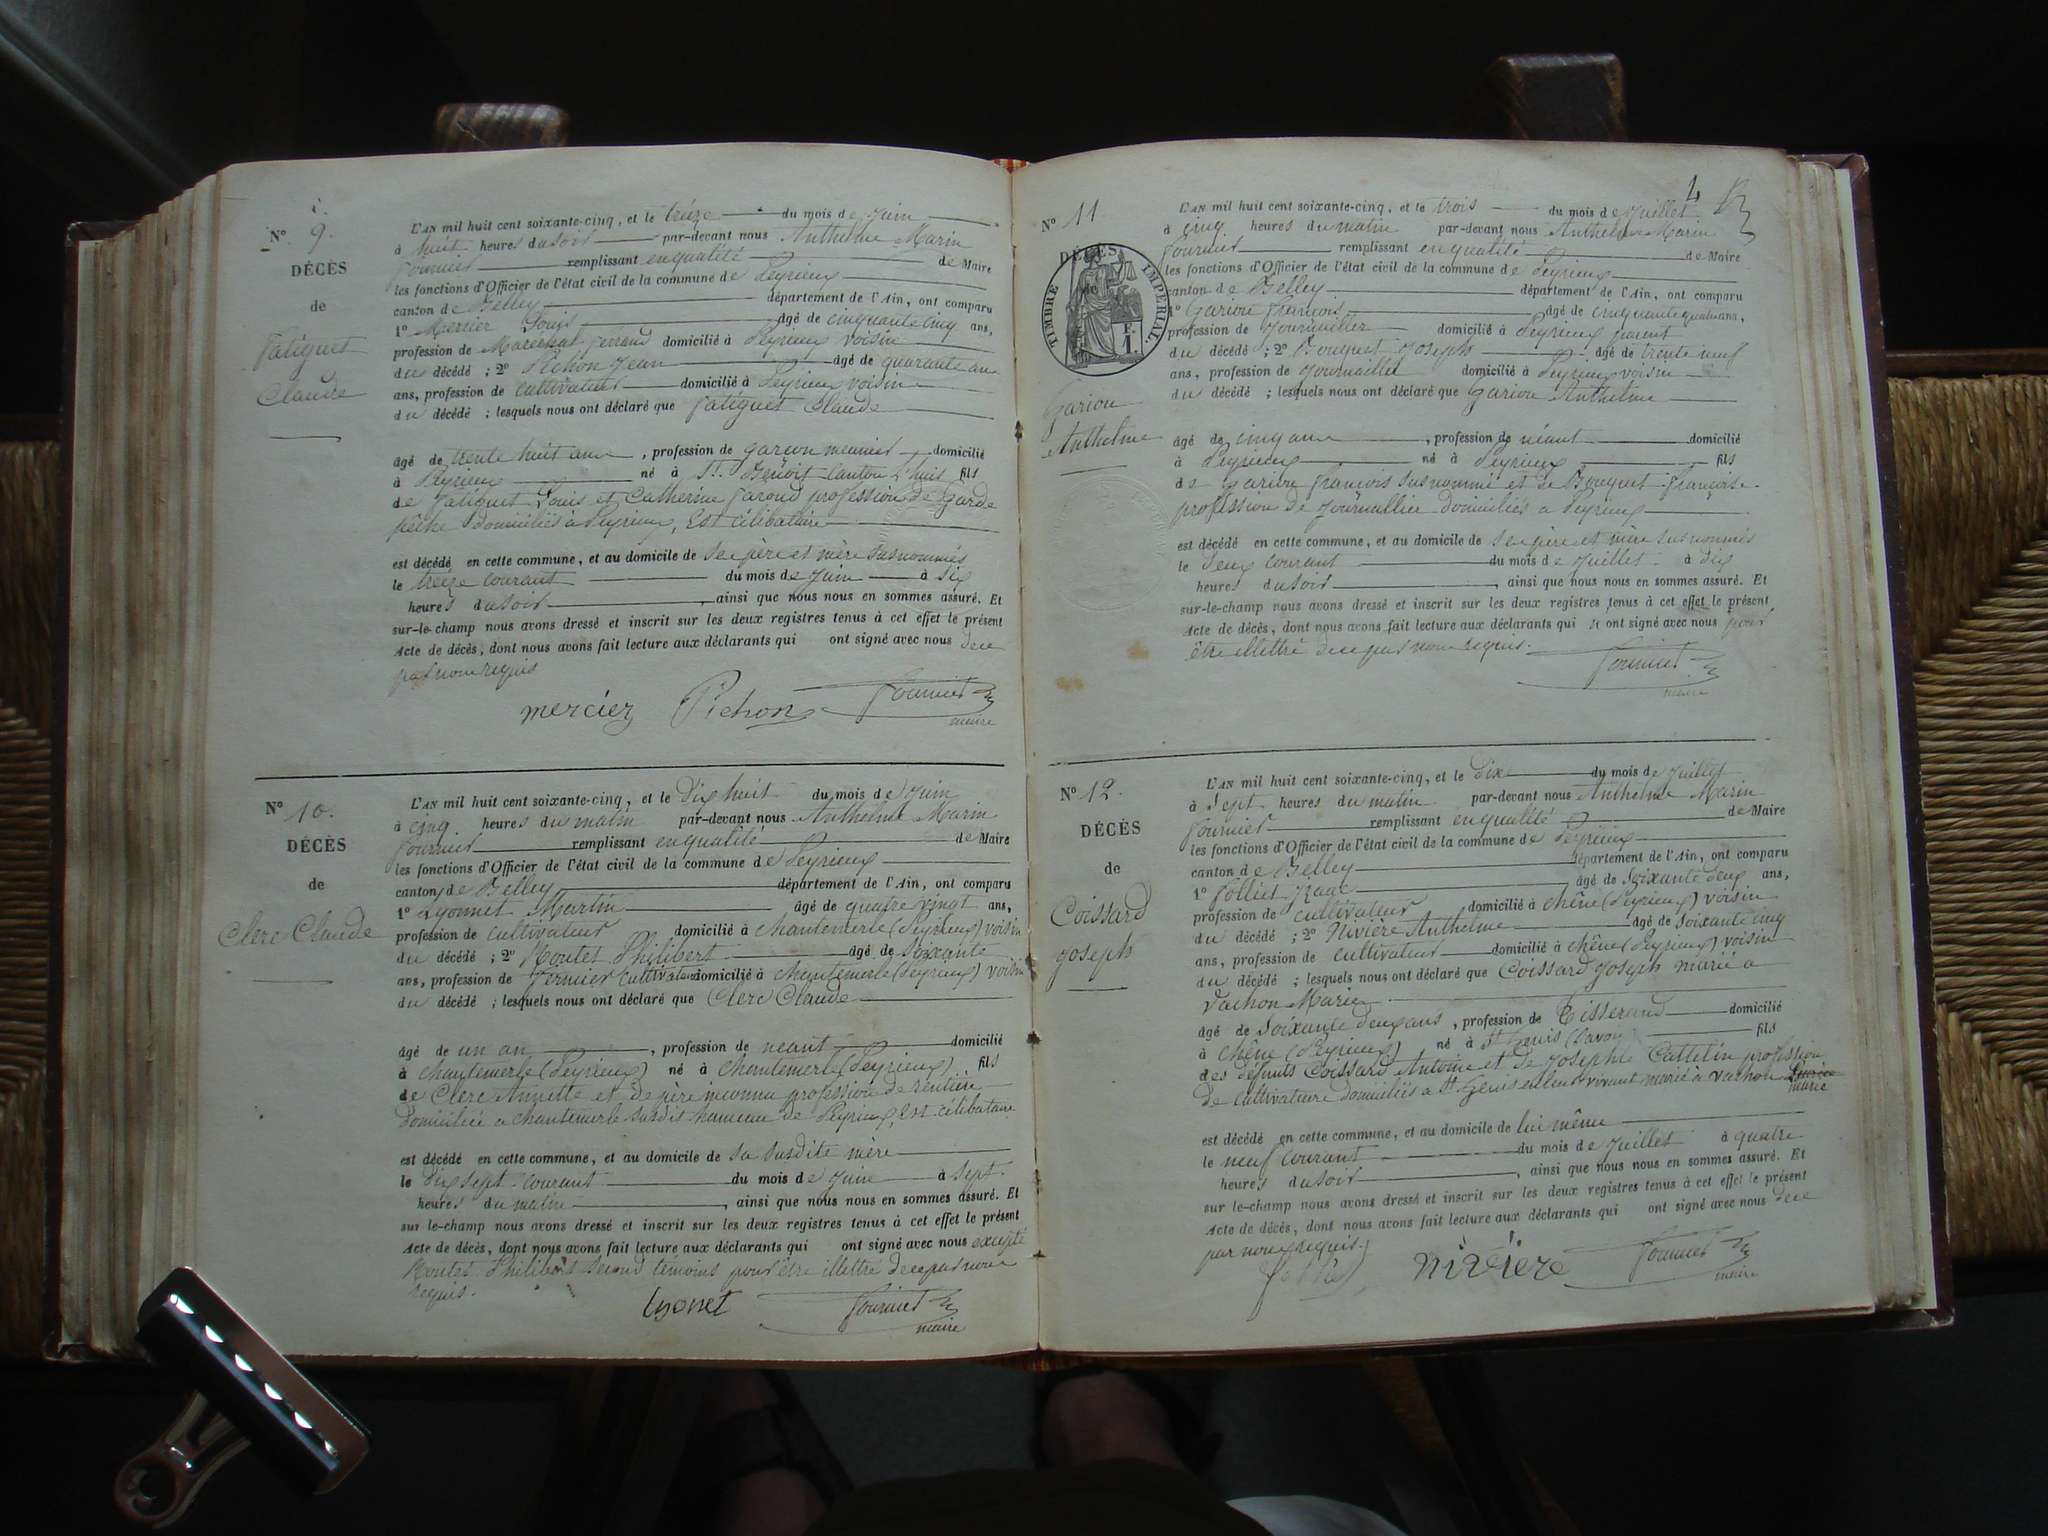 N° 9.
DÉCÈS
de
Fatiguet
Claude
L'AN mil huit cent soixante-cinq, et le treize du mois de Juin
à huit heures du soir par-devant nous Anthelme Marin
Fournier remplissant en qualité de Maire
les fonctions d'Officier de l'état civil de la commune de Peyrieux
canton de Belley département de l'Ain, ont comparu
1° Mercier Louis âgé de cinquante cinq ans,
profession de Maréchal ferrand domicilié à Peyrieux voisin
du décédé ; 2° Pichon Jean âgé de quarante an
ans, profession de cultivateur domicilié à Peyrieux voisin
du décédé ; lesquels nous ont déclaré que Fatiguet Claude
âgé de trente huit ans, profession de garçon meunier domicilié
à Peyrieux né à St. Benoit canton l'huis fils
de Fatiguet Louis et Catherine profession de Garde
pêche domiciliés à Peyrieux, Est célibataire
est décédé en cette commune, et au domicile de Ses père et mère susnommés
le treize courant du mois de Juin à six
heures du soir, ainsi que nous nous en sommes assuré. Et
sur-le-champ nous avons dressé et inscrit sur les deux registres tenus à cet effet le présent
Acte de décès, dont nous avons fait lecture aux déclarants qui ont signé avec nous de ce
par nous requis
mercier Pichon Fournier
maire
N° 10.
DÉCÈS
de
Clerc Claude
L'AN mil huit cent soixante-cinq, et le Dix huit du mois de Juin
à cinq heures du matin par-devant nous Anthelme Marin
Fournier remplissant en qualité de Maire
les fonctions d'Officier de l'état civil de la commune de Peyrieux
canton de Belley département de l'Ain, ont comparu
1° Lyonnet Martin âgé de quatre vingt ans,
profession de cultivateur domicilié à chantemerle (Peyrieux) voisin
du décédé ; 2° Moutet Philibert âgé de soixante
ans, profession de fermier cultivateur domicilié à chantemerle (Peyrieux) voisin
du décédé ; lesquels nous ont déclaré que Clerc Claude
âgé de un an, profession de néant domicilié
à chantemerle (Peyrieux) né à chantemerle (Peyrieux) fils
de Clerc Annette et de père inconnu profession de rentière
domiciliée a chantemerle susdit hameau de Peyrieux, Est célibataire
est décédé en cette commune, et au domicile de sa susdite mère
le dix sept courant du mois de Juin à sept
heures du matin, ainsi que nous nous en sommes assuré. Et
sur le-champ nous avons dressé et inscrit sur les deux registres tenus à cet effet le présent
Acte de décès, dont nous avons fait lecture aux déclarants qui ont signé avec nous excepté
Moutet Philibert second témoins pour être illettré de ce par nous
requis.
Lyonet Fournier
maire
4
N° 11.
DÉCÈS
TIMBRE IMPERIAL.
F.
1.
Gariou
Anthelme
L'AN mil huit cent soixante-cinq, et le trois du mois de Juillet
à cinq heures du matin par-devant nous Anthelme Marin
Fournier remplissant en qualité de Maire
les fonctions d'Officier de l'état civil de la commune de Peyrieux
canton de Belley département de l'Ain, ont comparu
1° Gariou François âgé de cinquante quatre ans,
profession de Journalier domicilié à Peyrieux parent
du décédé ; 2° Bouquet Joseph âgé de trente neuf
ans, profession de Journallier domicilié à Peyrieux voisin
du décédé ; lesquels nous ont déclaré que Gariou Anthelme
âgé de cinq ans, profession de néant domicilié
à Peyrieux né à Peyrieux fils
de Gariou françois Susnommé et de Bouquet françoise
profession de Journallier domiciliés a Peyrieux
est décédé en cette commune, et au domicile de ses père et mère susnommés
le Deux courant du mois de Juillet à dix
heures du soir, ainsi que nous nous en sommes assuré. Et
sur-le-champ nous avons dressé et inscrit sur les deux registres tenus à cet effet le présent
Acte de décès, dont nous avons fait lecture aux déclarants qui n'ont signé avec nous pour
être illettré de ce par nous requis.
Fournier
maire
N° 12.
DÉCÈS
de
Coissard
Joseph
L'AN mil huit cent soixante-cinq, et le dix du mois de Juillet
à Sept heures du matin par-devant nous Anthelme Marin
Fournier remplissant en qualité de Maire
les fonctions d'Officier de l'état civil de la commune de Peyrieux
canton de Belley département de l'Ain, ont comparu
1° Folliet âgé de Soixante deux ans,
profession de cultivateur domicilié à chêne (Peyrieux) voisin
du décédé ; 2° Nivière Anthelme âgé de soixante cinq
ans, profession de cultivateur domicilié à chêne (Peyrieux) voisin
du décédé ; lesquels nous ont déclaré que Coissard Joseph marié a
Vachon Marie
âgé de Soixante deux ans, profession de Tisserand domicilié
à chêne (Peyrieux) né à St Genis (Savoy) fils
des défunts Coissard Antoine et de Josephte Cattelin profession
de cultivateurs domiciliés à St Genis en leur vivant marié à Vachon
marie
est décédé en cette commune, et au domicile de lui même
le neuf courant du mois de Juillet à quatre
heures du soir, ainsi que nous nous en sommes assuré. Et
sur-le-champ nous avons dressé et inscrit sur les deux registres tenus à cet effet le présent
Acte de décès, dont nous avons fait lecture aux déclarants qui ont signé avec nous de ce
par nous requis.
nivière Fournier
maire